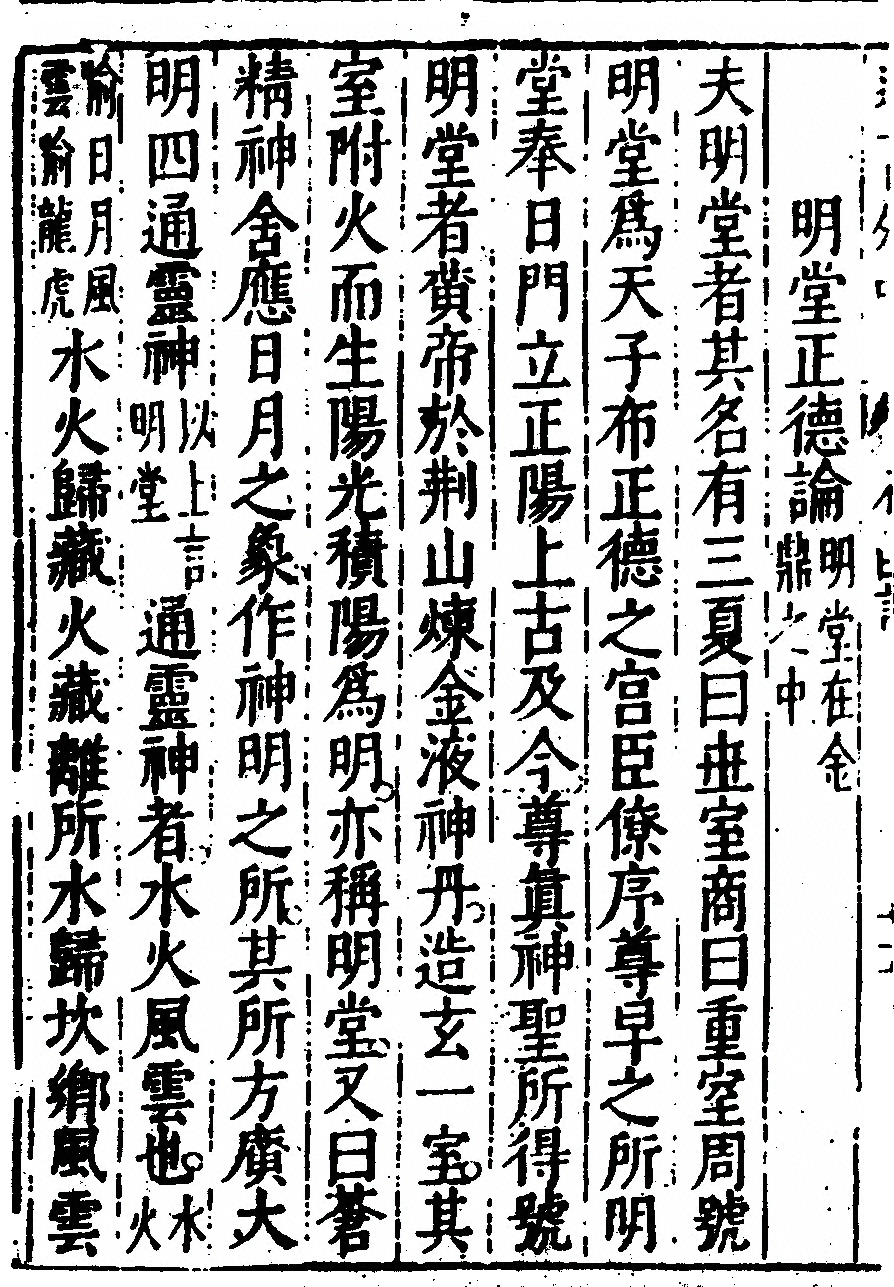 明堂正德論明堂在金鼎之中
夫明堂者其名有三夏曰世室商曰重室周號
明堂爲天子布正德之宮臣僚序尊卑之所明
堂奉日門立正陽上古及今尊眞神聖所得號
明堂者黄帝於荆山煉金液神丹造玄一室其
室附火而生陽光積陽爲明亦稱明堂又曰蒼
精神舍應日月之象作神明之所其所方廣大
明四通靈神以上言明堂通靈神者水火風雲也水火
喻日月風雲喻龍虎水火歸藏火藏離所水歸坎鄉風雲